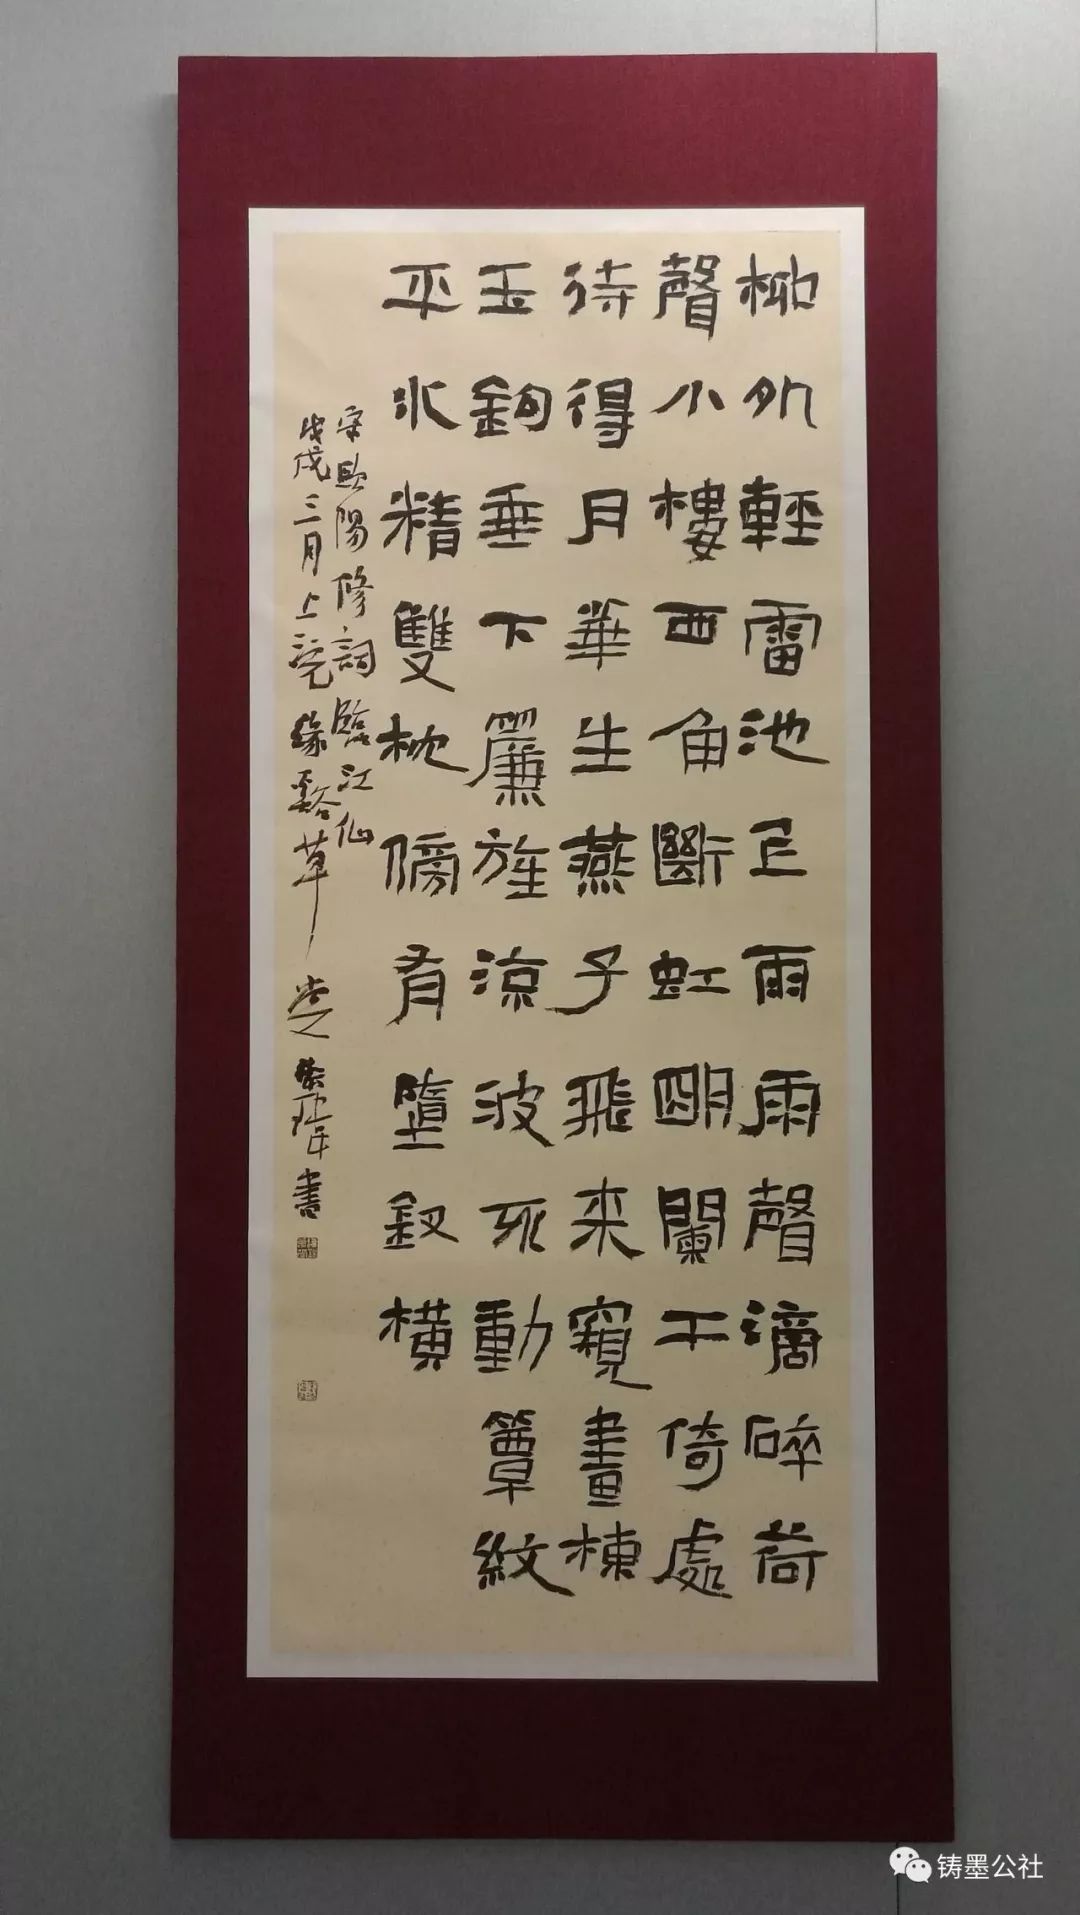 柳外輕雷池上雨雨聲滴碎荷
聲小樓西角斷虹明闌干倚處
待得月華生燕子飛来窺畫棟
玉鉤垂下簾旌涼波不動簟紋
平水精雙枕傍有墮釵橫
宋歐陽修詞臨江仙
戊戌三月上浣緣谿草堂書
铸墨公社